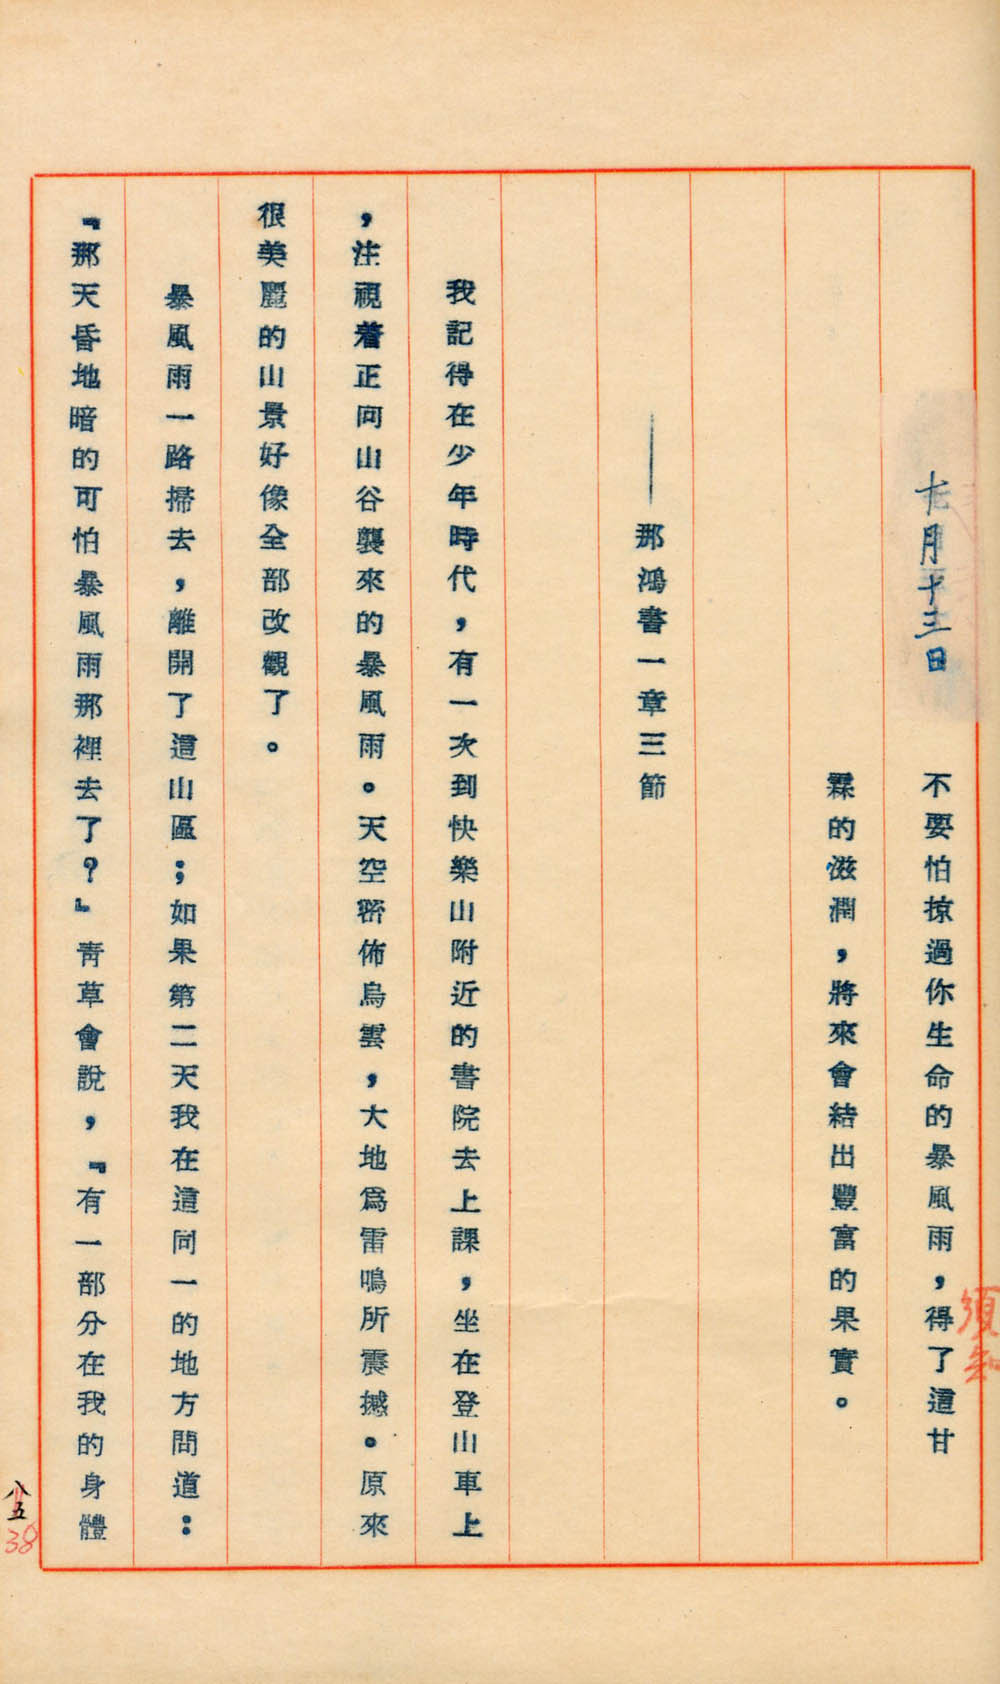 七月十三日
不要怕掠過你生命的暴風雨，得了這甘
霖的滋潤，將來會結出豐富的果實。
須知
——那鴻書一章三節
我記得在少年時代，有一次到快樂山附近的書院去上課，坐在登山車上
，注視着正向山谷襲來的暴風雨。天空密佈烏雲，大地為雷鳴所震撼。原來
很美麗的山景好像全部改觀了。
暴風雨一路掃去，離開了這山區；如果第二天我在這同一的地方問道：
『那天昏地暗的可怕暴風雨那裡去了？』青草會說，『有一部分在我的身體
八五
38